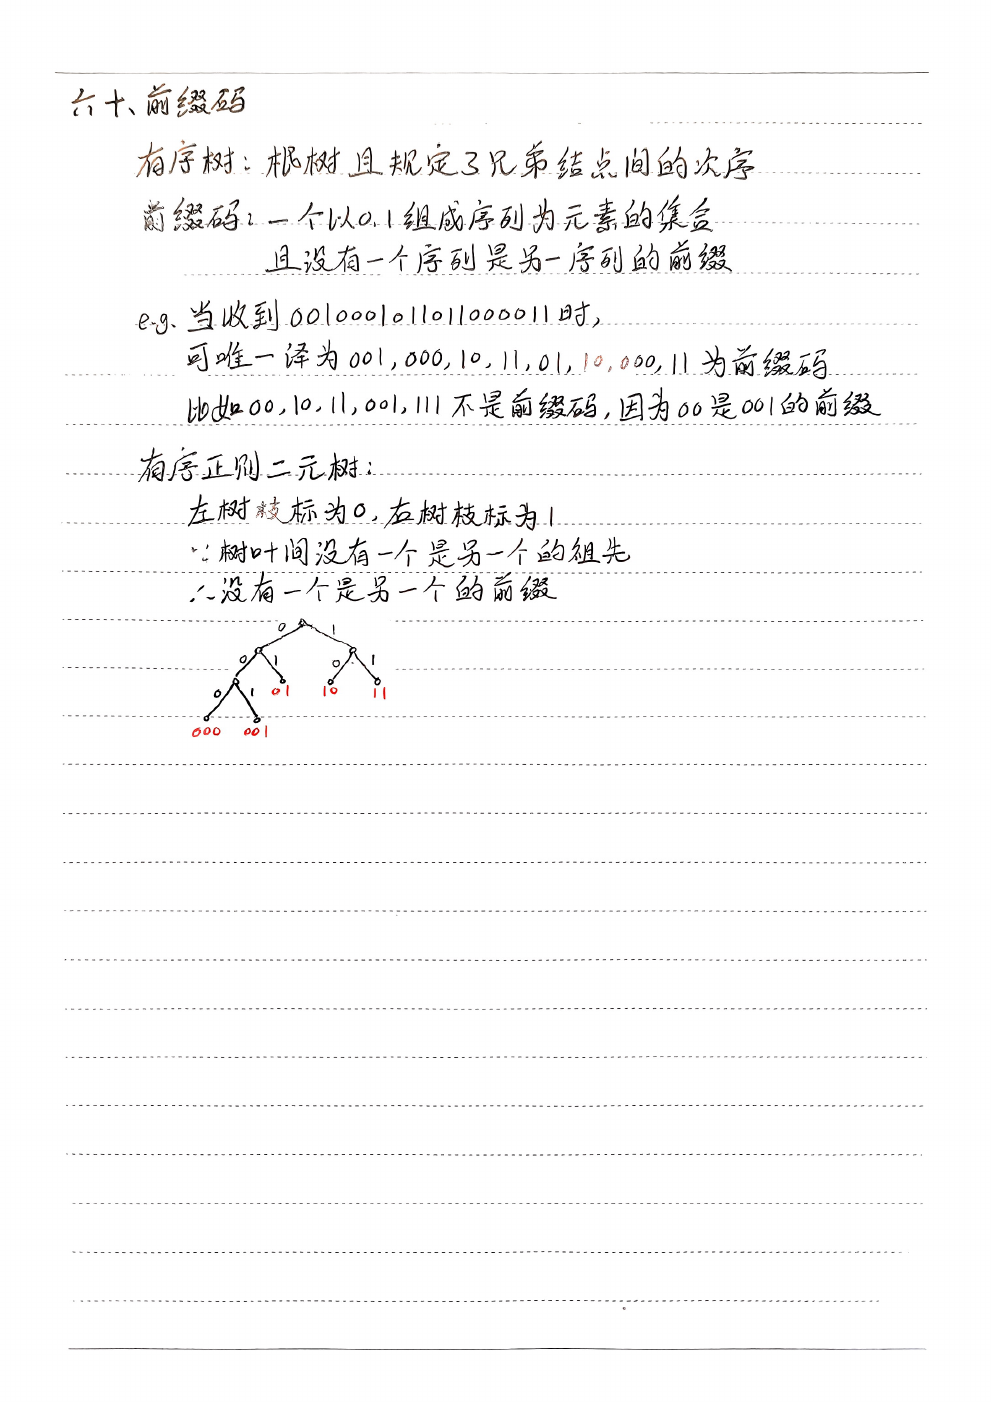 六十、前缀码
有序树：根树且规定了兄弟结点间的次序
前缀码：一个以0.1组成序列为元素的集合
且没有一个序列是另一序列的前缀
e.g. 当收到0010001011011000011时，
可唯一译为001,000,10,11,01,10,000,11 为前缀码
比如00,10,11,001,111不是前缀码,因为00是001的前缀
有序正则二元树：
左树枝标为0,右树枝标为1
∵树叶间没有一个是另一个的祖先
∴没有一个是另一个的前缀
0 1
0 1 0 1
0 1 01 10 11
000 001